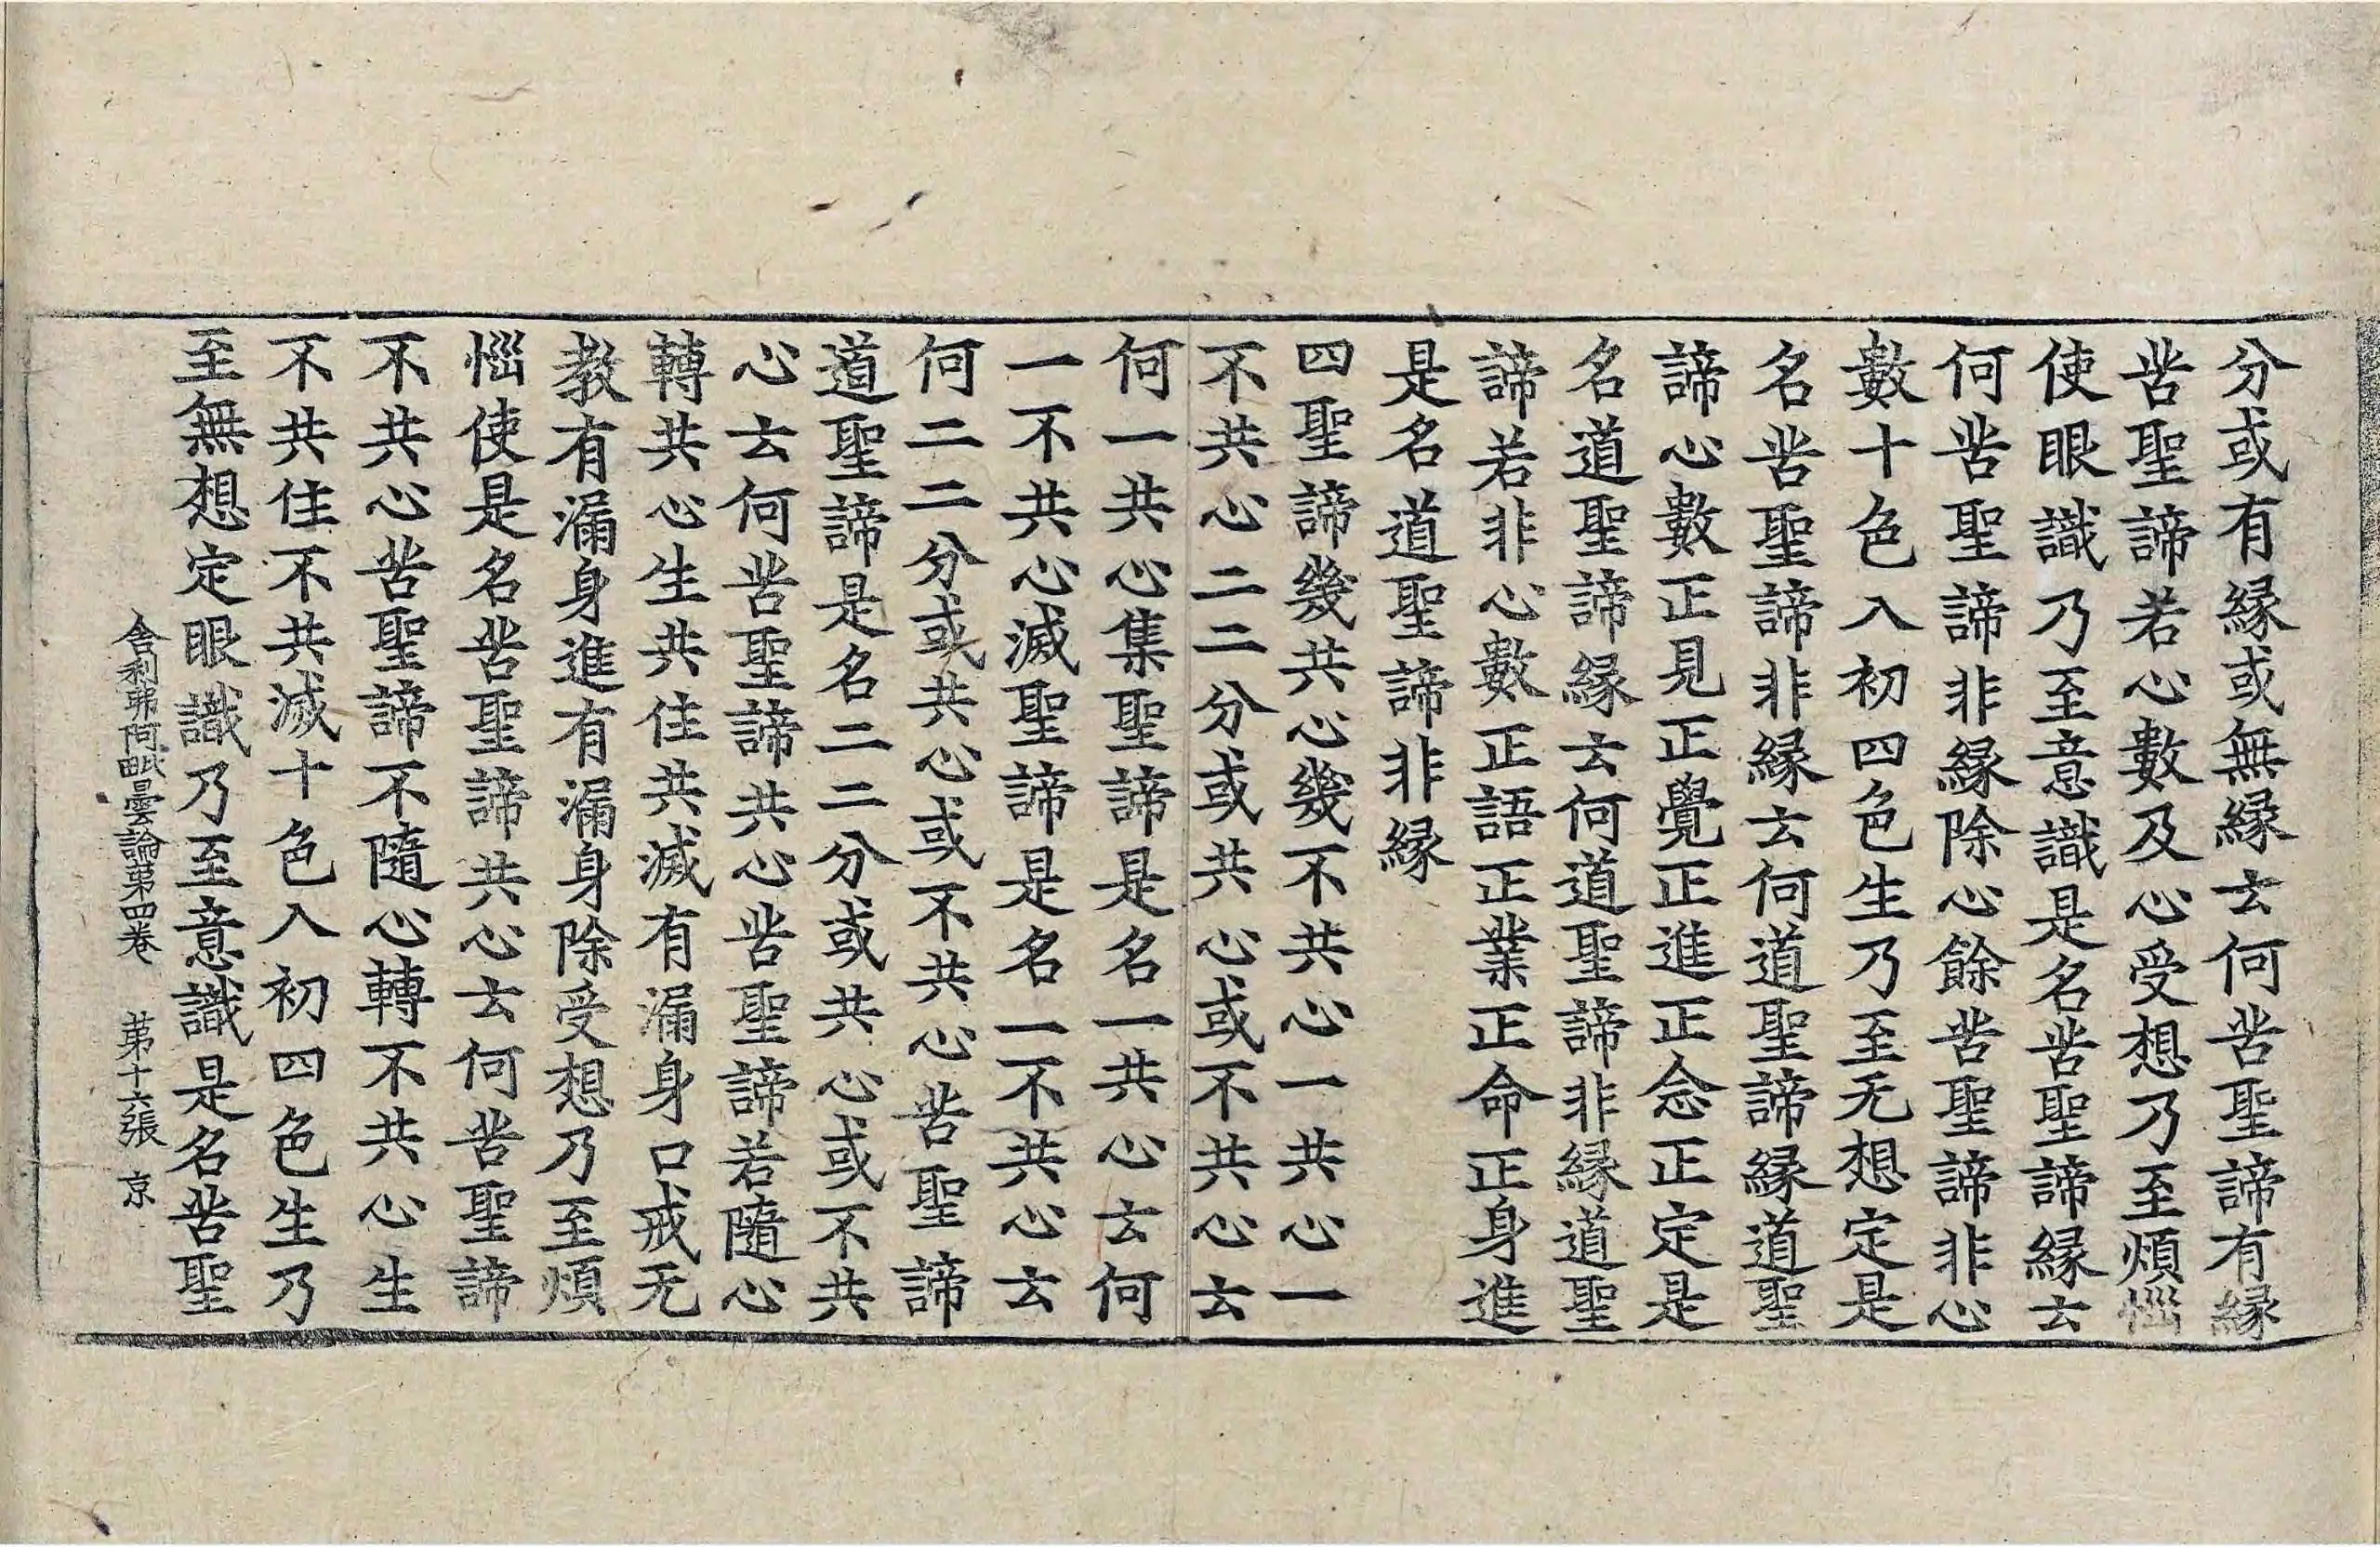 分或有縁或無縁云何苦聖諦有縁
苦聖諦若心數及心受想乃至煩惱
使眼識乃至意識是名苦聖諦縁云
何苦聖諦非縁除心餘苦聖諦非心
數十色入初四色生乃至无想定是
名苦聖諦非縁云何道聖諦縁道聖
諦心數正見正覺正進正念正定是
名道聖諦縁云何道聖諦非縁道聖
諦若非心數正語正業正命正身進
是名道聖諦非縁
四聖諦幾共心幾不共心一共心一
不共心二二分或共心或不共心云
何一共心集聖諦是名一共心云何
一不共心滅聖諦是名一不共心云
何二二分或共心或不共心苦聖諦
道聖諦是名二二分或共心或不共
心云何苦聖諦共心苦聖諦若隨心
轉共心生共住共滅有漏身口戒无
教有漏身進有漏身除受想乃至煩
惱使是名苦聖諦共心云何苦聖諦
不共心苦聖諦不隨心轉不共心生
不共住不共滅十色入初四色生乃
至無想定眼識乃至意識是名苦聖
舍利弗阿毗曇論第四卷　第十六張　京